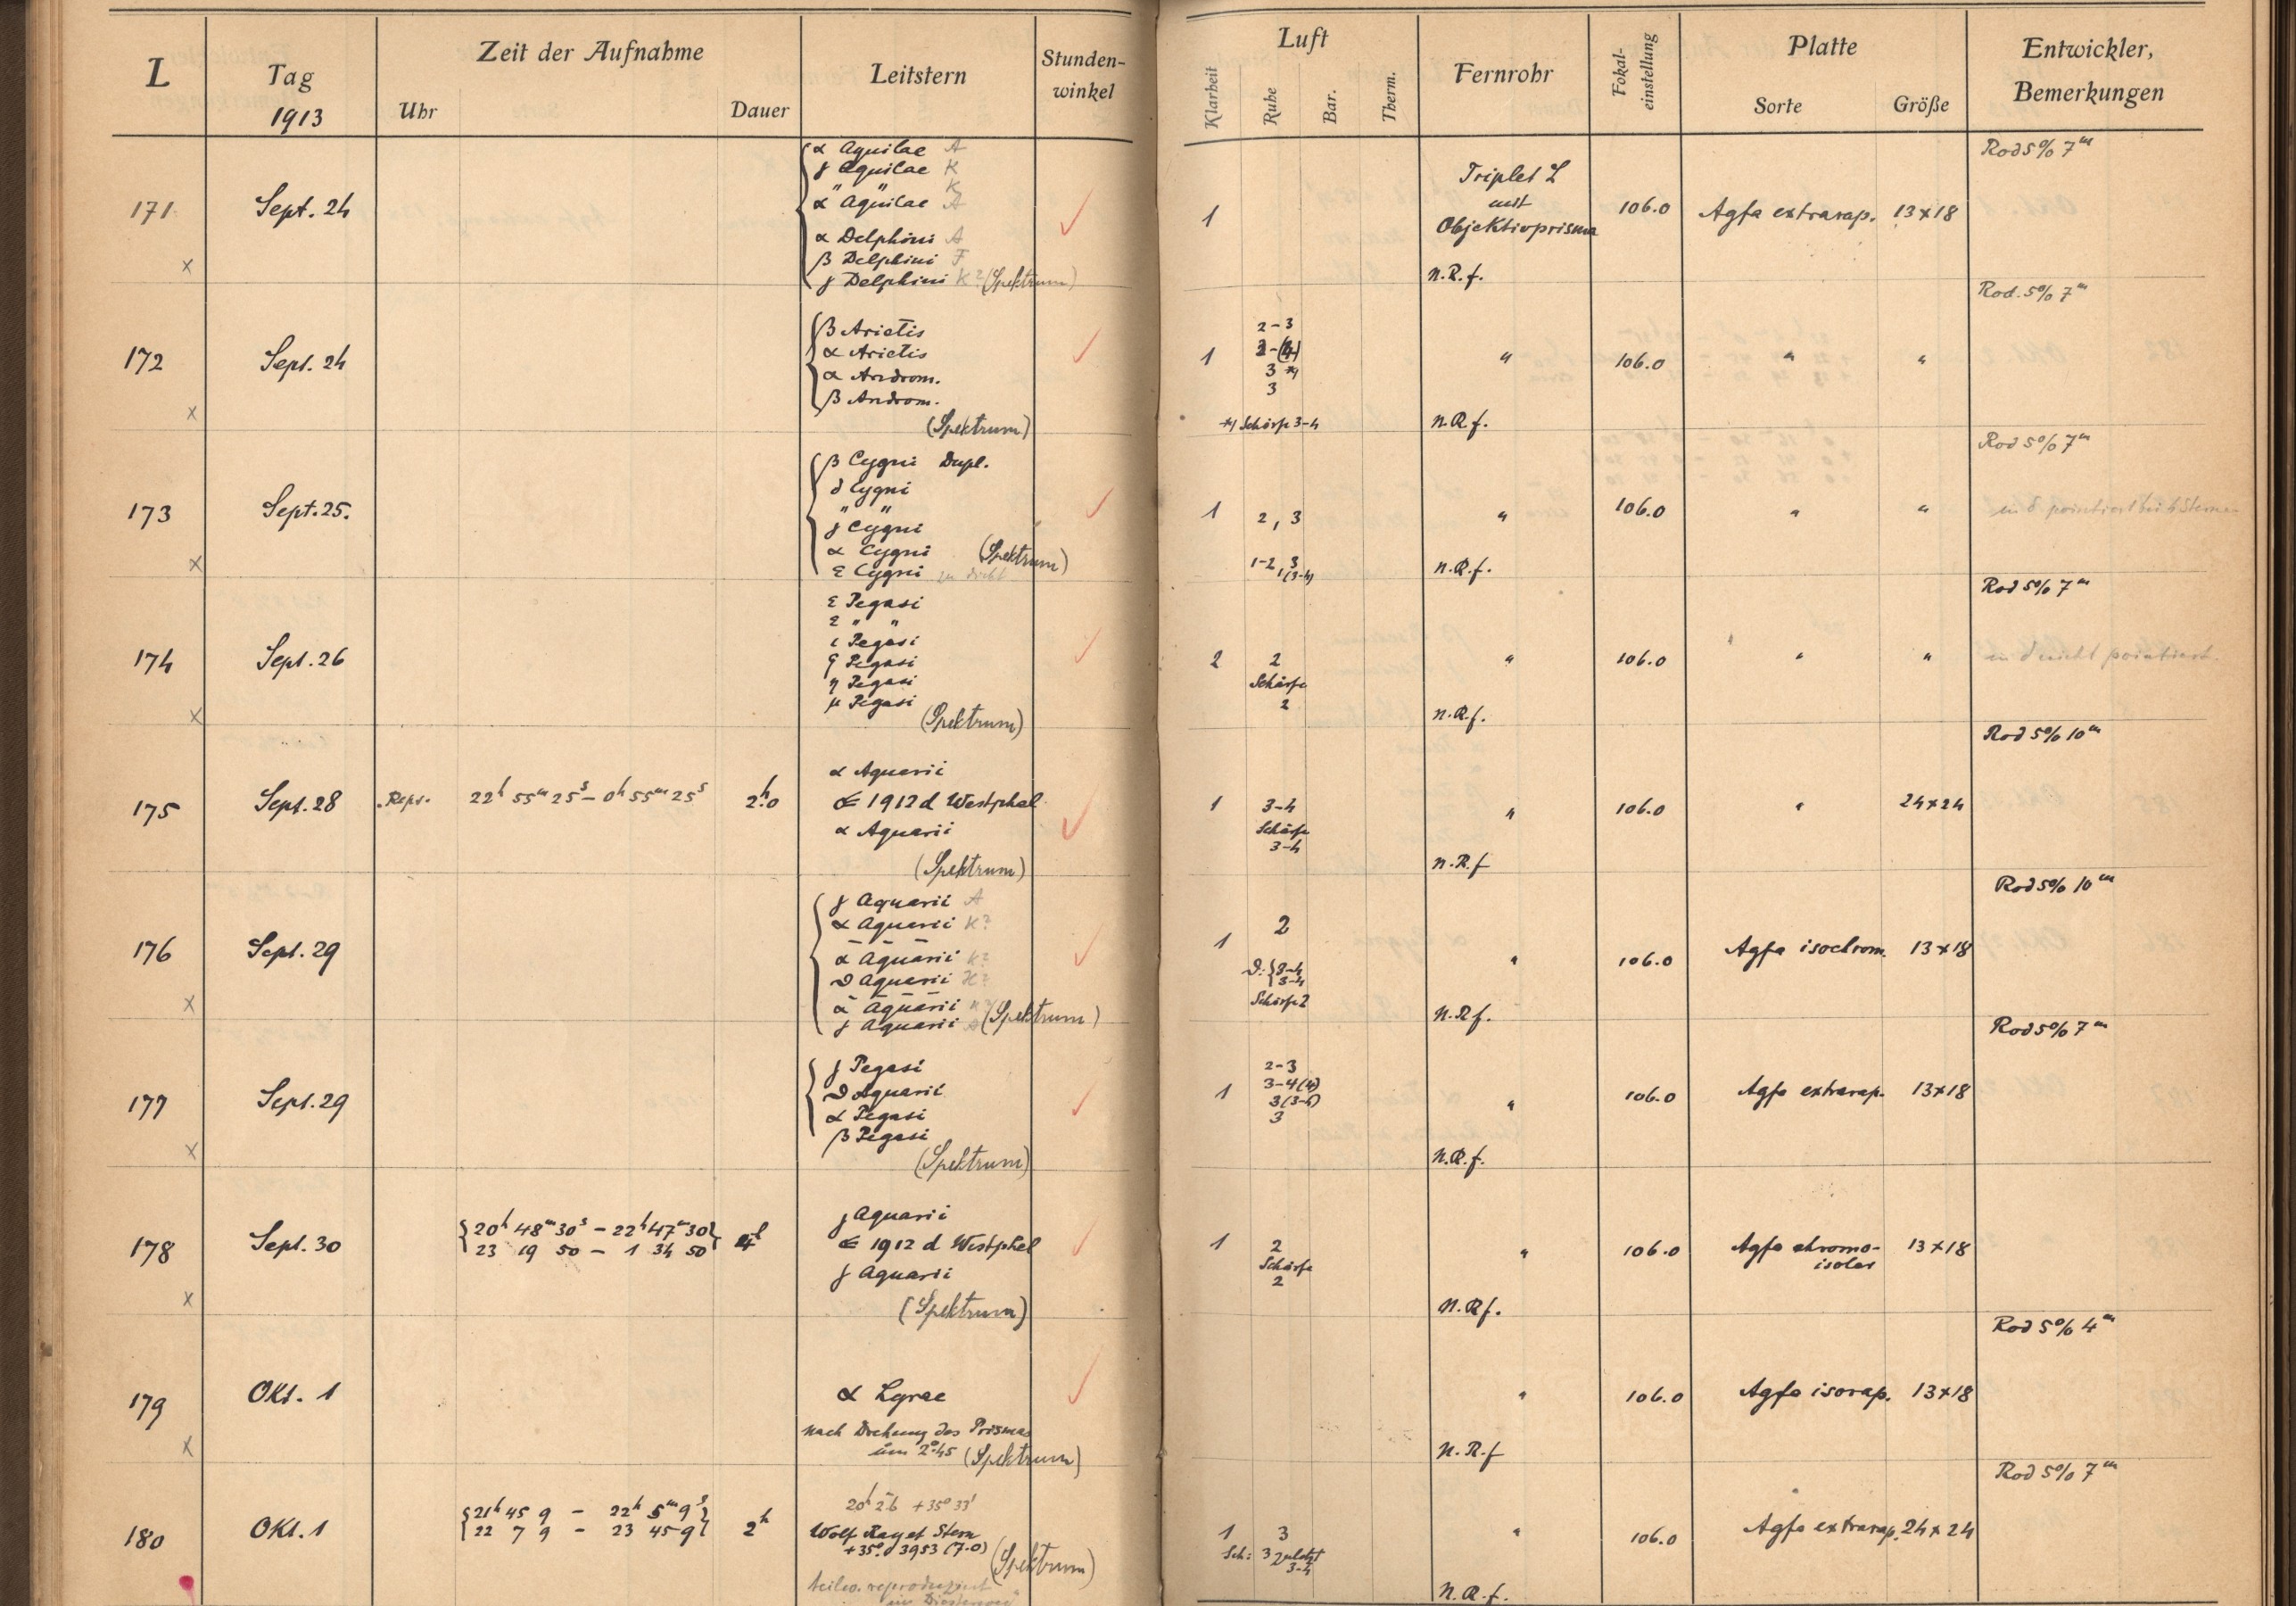 L Tag 1913 Zeit der Aufnahme Uhr Dauer Leitstern Stunden-winkel Luft Klarheit Ruhe Bar. Therm. Fernrohr Fokal-einstellung Platte Sorte Größe Entwickler, Bemerkungen
Rod 5% 7m
α Aquilae A
γ Aquilae K
" " K
α Aquilae A
171 Sept. 24 1 Triplet L mit Objektivprisma 106.0 Agfa extrarap. 13×18
α Delphini A
β Delphini F
x γ Delphini K? (Spektrum) n.R.f.
Rod. 5% 7m
β Arietis 2-3
172 Sept. 24 α Arietis 1 " 106.0 " "
α Androm. 3 *)
β Androm. 3
x (Spektrum) *) Schärfe 3-4 n.R.f.
Rod 5% 7m
β Cygni Dupl.
δ Cygni
173 Sept. 25. " " 1 2, 3 " 106.0 " "
γ Cygni
α Cygni (Spektrum)
x ε Cygni 1-2, 3 (3-4) n.R.f.
Rod 5% 7m
ε Pegasi
ε " "
ι Pegasi
174 Sept. 26 Pegasi 2 2 " 106.0 " " in δ nicht pointiert.
η Pegasi Schärfe
μ Pegasi 2
x (Spektrum) n.R.f.
Rod 5% 10m
α Aquarii
175 Sept. 28 Reps. 22h 55m 25s – 0h 55m 25s 2h.0 1912 d Westphal 1 3-4 " 106.0 " 24×24
α Aquarii Schärfe
3-4
(Spektrum) n.R.f
Rod 5% 10m
γ Aquarii A
α Aquarii K? 2
176 Sept. 29 α Aquarii K? 1 " 106.0 Agfa isochrom. 13×18
ϑ Aquarii K? ϑ: {3-4 3-4
x α Aquarii K? (Spektrum) Schärfe 2 n.R.f.
γ Aquarii A
Rod 5% 7m
γ Pegasi 2-3
177 Sept. 29 ϑ Aquarii 1 3-4(4) " 106.0 Agfa extrarap. 13×18
α Pegasi 3(3-4)
β Pegasi 3
x (Spektrum) n.R.f.
γ Aquarii
178 Sept. 30 {20h 48m 30s – 22h 47m 30} 1912 d Westphal 1 2 " 106.0 Agfa chromo-isolar 13×18
{23 19 50 – 1 34 50}
γ Aquarii Schärfe 2
x (Spektrum) n.R.f.
Rod 5% 4m
179 Okt. 1 α Lyrae " 106.0 Agfa isorap. 13×18
nach Drehung des Prismas
x um 2°.45 (Spektrum) n.R.f
Rod 5% 7m
20h 2m.6 +35° 33'
180 Okt. 1 {21h 45 9 – 22h 5m 9s} 2h Wolf Rayet Stern 1 3 " 106.0 Agfa extrarap. 24×24
{22 7 9 – 23 45 9}
+35°.3953 (7.0) (Spektrum) Sch: 3 zuletzt 3-4
teilw. reproduziert n.R.f.